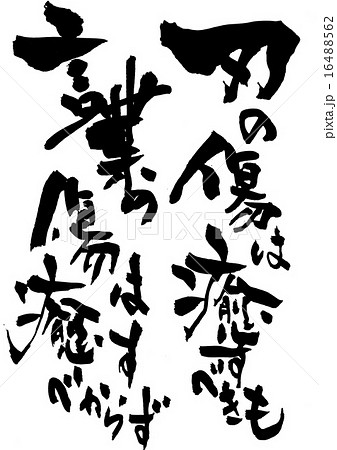 刃の傷は癒すべきも
言葉の傷は癒すべからず
PIXTA
pixta.jp - 16488562